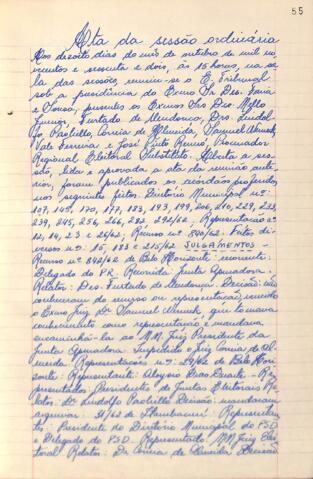 55
Ata da sessão ordinária
Aos dezoito dias do mês de outubro de mil no-
vecentos e sessenta e dois, às 15 horas, na sa-
la das sessões, reuniu-se o E. Tribunal
sob a presidência do Exmo Sr. Des. Faria
e Sousa, presentes os Exmos Srs. Des. Mello
Junior, Furtado de Mendonça, Drs. Lindol-
fo Paoliello, Correia de Almeida, Samuel Werneck,
Vale Ferreira e José Pinto Renó, Procurador
Regional Eleitoral Substituto. Aberta a ses-
são, lida e aprovada a ata da reunião ante-
rior, foram publicados os acórdãos proferidos
nos seguintes feitos: Diretório Municipal nº:
107, 145, 170, 177, 183, 193, 199, 206, 210, 229, 233,
239, 245, 256, 266, 282, 292/62. Representação nº
12, 14, 23 e 26/62; Recurso nº 840/62. Feitos di-
versos nº: 15, 183 e 215/62 JULGAMENTOS -
Recurso nº 842/62 de Belo Horizonte: recorrente:
Delegado do P.R. Recorrida: Junta Apuradora.
Relator: Des. Furtado de Mendonça. Decisão: não
conheceram do recurso ou representação, vencido
o Exmo Juiz Dr. Samuel Werneck, que tomava
conhecimento como representação e mandava
encaminhá-la ao M.M. Juiz Presidente da
Junta Apuradora. Impedido o Juiz Correia de Al-
meida. Representações: nº: 29/62 de Belo Hori-
zonte: Representante: Aloysio Dias Duarte - Re-
presentados: Presidentes de Juntas Eleitorais Re-
lator: Dr. Lindolfo Paoliello Decisão: mandaram
arquivar. 31/62 de Itambacuri: Representan-
te: Presidente do Diretório Municipal do PSD
e Delegado do PSD. Representado: M.M. Juiz Elei-
toral Relator: Dr. Correia de Almeida Decisão